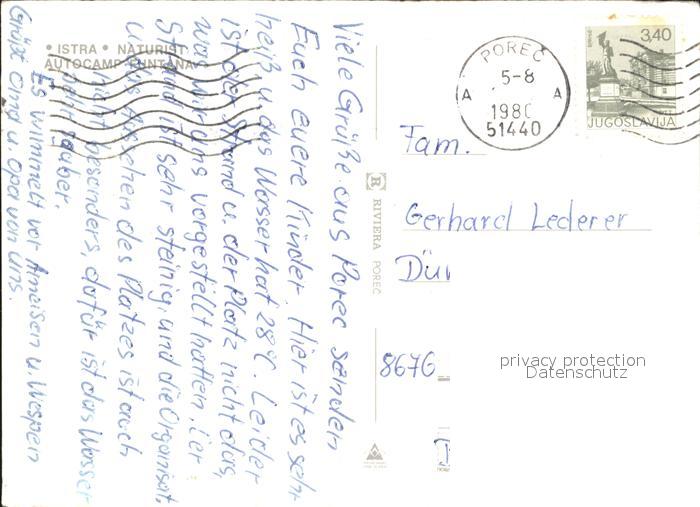 • ISTRA • NATURIST
AUTOCAMP FUNTANA
Viele Grüße aus Porec senden
Euch euere Kinder. Hier ist es sehr
heiß u. das Wasser hat 28°C. Leider
ist der Strand u. der Platz nicht das,
was wir uns vorgestellt hatten. Der
Strand ist sehr steinig, und die Organisat.
u. das Aussehen des Platzes ist auch
nicht besonders, dafür ist das Wasser
sehr sauber.
Es wimmelt vor Ameisen u. Wespen
Grüßt Oma u. Opa von uns.
RIVIERA POREČ
POREČ
5-8
1980
A A
51440
3,40
JUGOSLAVIJA
Fam.
Gerhard Lederer
Dür
8676
privacy protection
Datenschutz